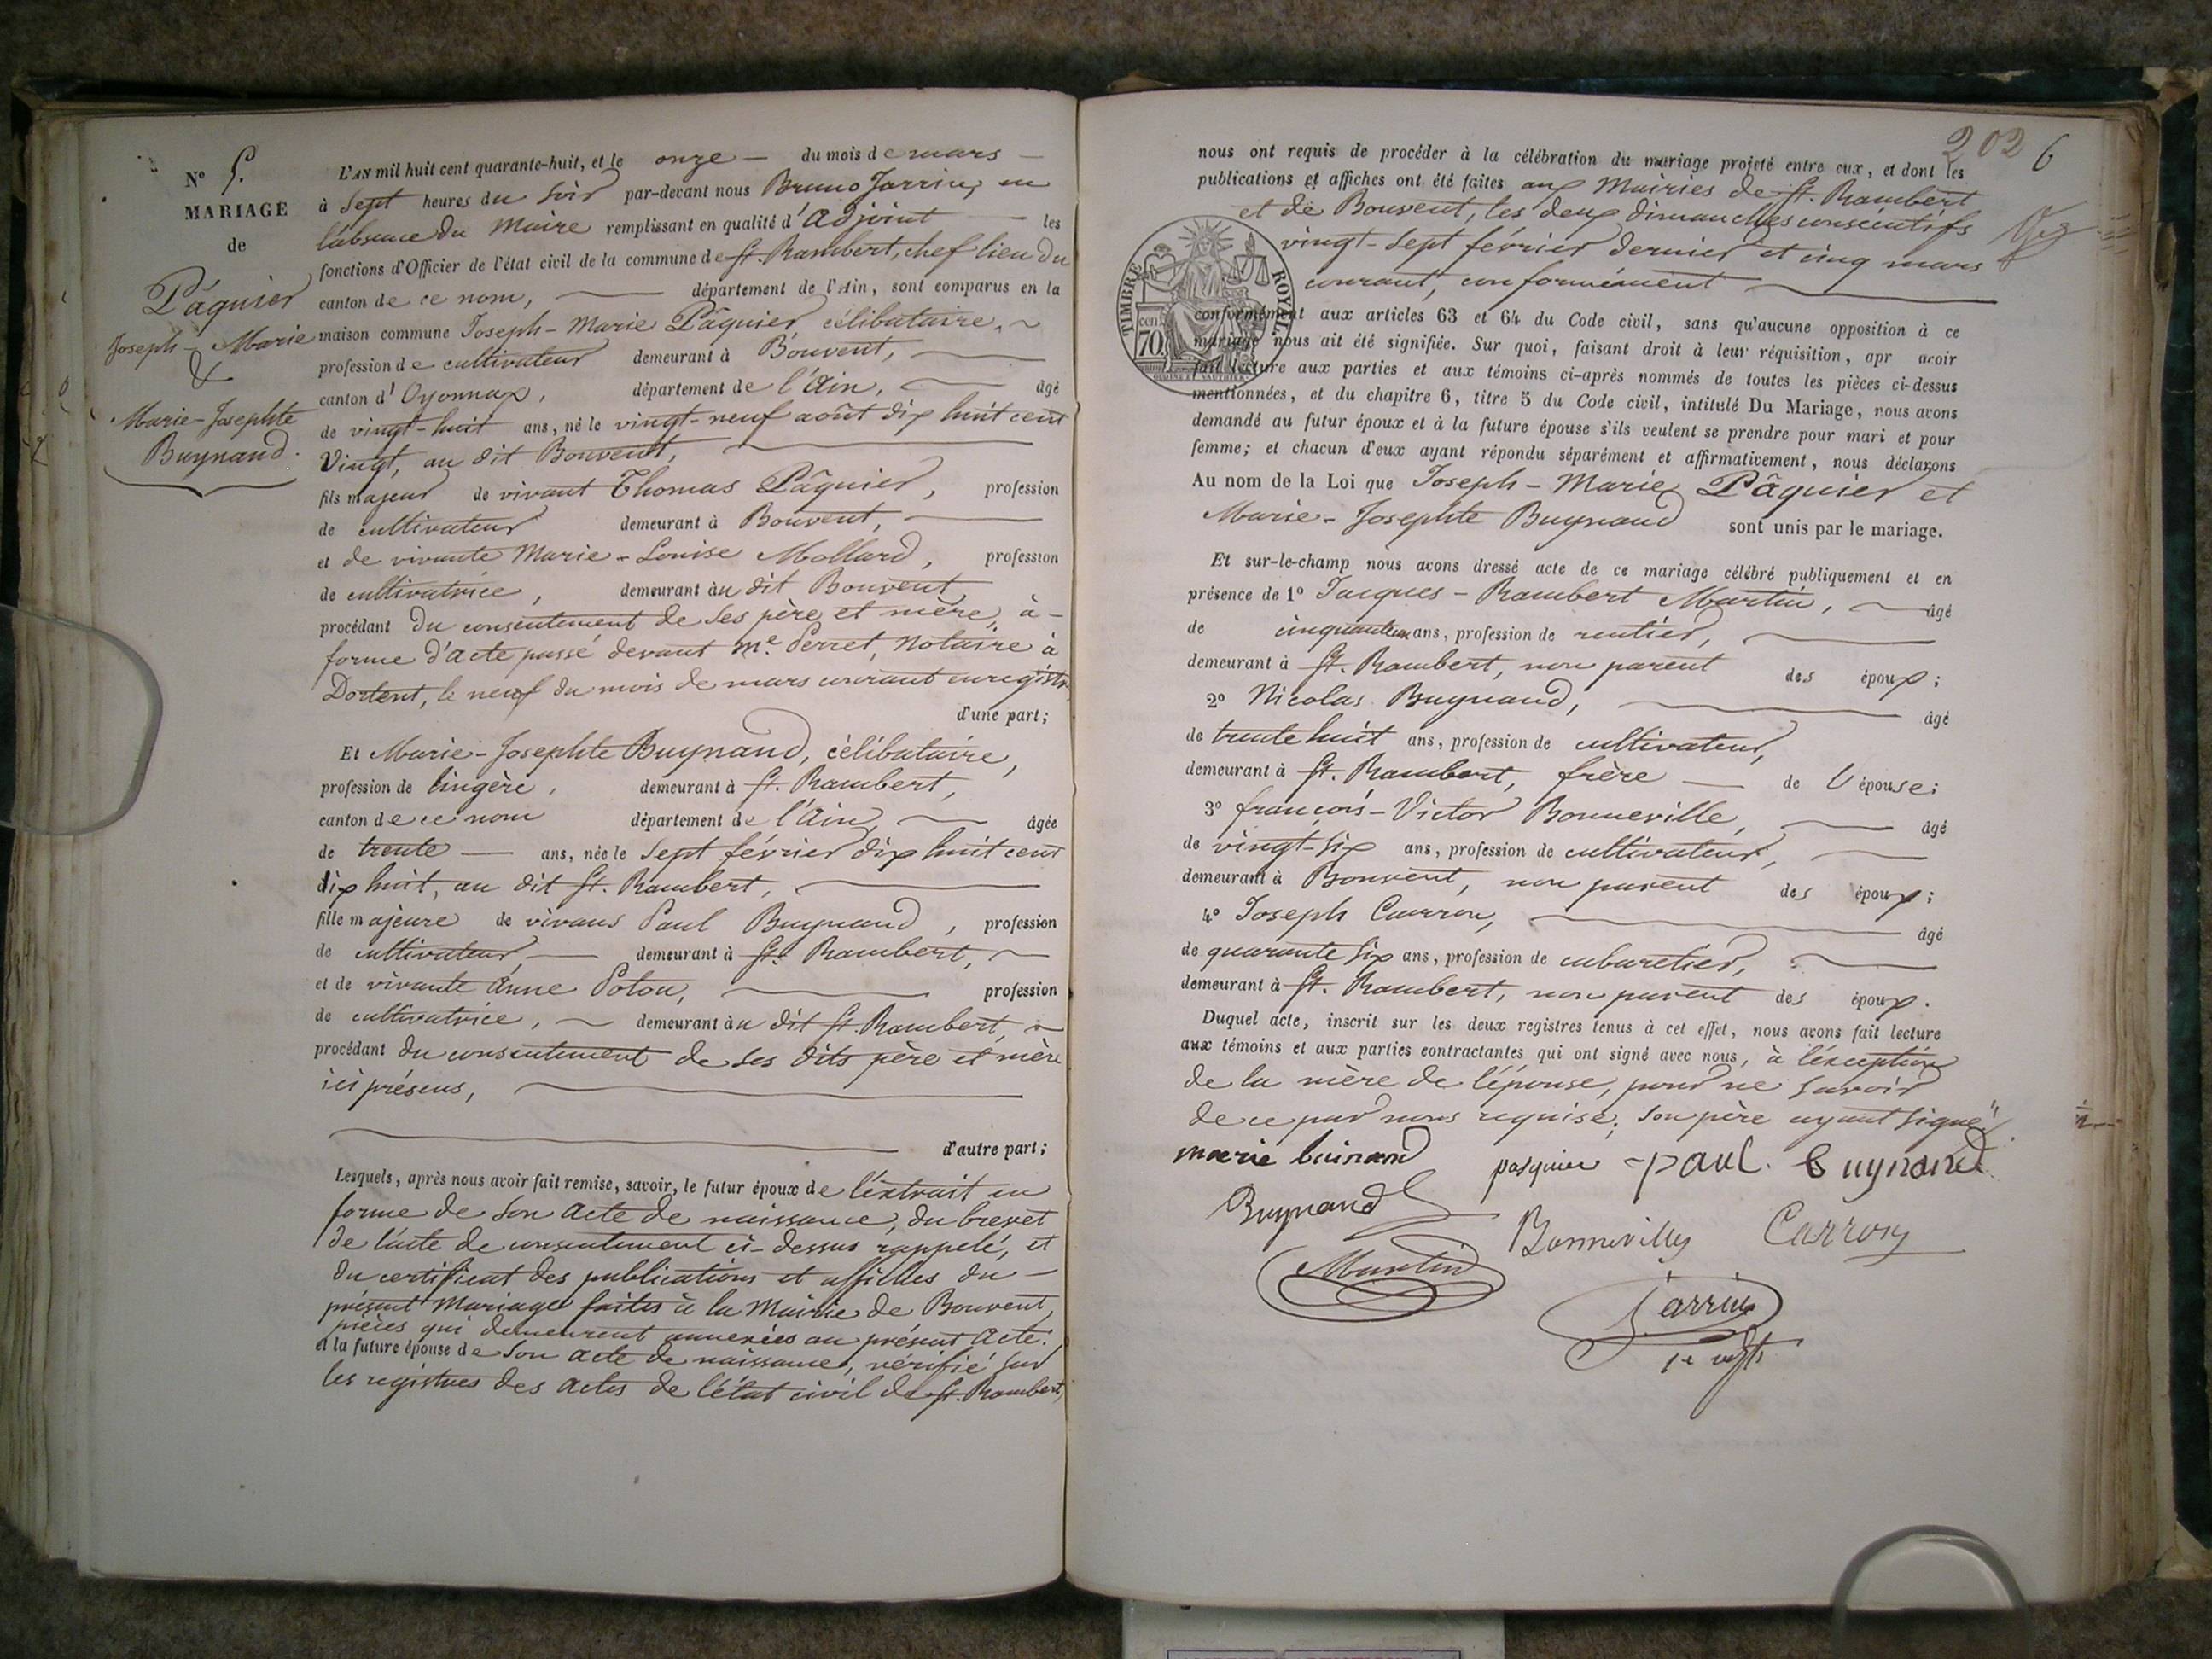 N° 5.
MARIAGE
de
Pâquier
Joseph-Marie
&
Marie-Josephte
Buynand.
L'AN mil huit cent quarante-huit, et le onze du mois de mars
à sept heures du soir par-devant nous Bruno Jarrin, en
l'absence du Maire remplissant en qualité d'adjoint les
fonctions d'Officier de l'état civil de la commune de St. Rambert, chef lieu du
canton de ce nom, département de l'Ain, sont comparus en la
maison commune Joseph-Marie Pâquier, célibataire,
profession de cultivateur demeurant à Bouvent,
canton d'Oyonnax, département de l'Ain, âgé
de vingt-huit ans, né le vingt-neuf août dix huit cent
vingt, au dit Bouvent,
fils majeur de vivant Thomas Pâquier, profession
de cultivateur demeurant à Bouvent,
et de vivante Marie-Louise Mollard, profession
de cultivatrice, demeurant au dit Bouvent
procédant du consentement de ses père et mère, à
forme d'acte passé devant Me. Perret, Notaire à
Dortent, le neuf du mois de mars courant enregistré
d'une part;
Et Marie-Josephte Buynand, célibataire,
profession de lingère, demeurant à St. Rambert,
canton de ce nom département de l'Ain, âgée
de trente ans, née le sept février dix huit cent
dix huit, au dit St. Rambert,
fille majeure de vivans Paul Buynand, profession
de cultivateur, demeurant à St. Rambert,
et de vivante Anne Poton, profession
de cultivatrice, demeurant au dit St. Rambert,
procédant du consentement de ses dits père et mère
ici présens,
d'autre part;
Lesquels, après nous avoir fait remise, savoir, le futur époux de l'extrait en
forme de son acte de naissance, du brevet
de l'acte de consentement ci-dessus rappelé, et
du certificat des publications et affiches du
présent Mariage faites à la Mairie de Bouvent,
pièces qui demeurent annexées au présent acte.
et la future épouse de son acte de naissance, vérifié sur
les registres des actes de l'état civil de St. Rambert,
202 6
nous ont requis de procéder à la célébration du mariage projeté entre eux, et dont les
publications et affiches ont été faites aux Mairies de St. Rambert
et de Bouvent, les deux dimanches consécutifs
vingt-sept février dernier et cinq mars
courant, conformément
TIMBRE ROYAL
cen. 70
conformément aux articles 63 et 64 du Code civil, sans qu'aucune opposition à ce
mariage nous ait été signifiée. Sur quoi, faisant droit à leur réquisition, apr avoir
fait lecture aux parties et aux témoins ci-après nommés de toutes les pièces ci-dessus
mentionnées, et du chapitre 6, titre 5 du Code civil, intitulé Du Mariage, nous avons
demandé au futur époux et à la future épouse s'ils veulent se prendre pour mari et pour
femme; et chacun d'eux ayant répondu séparément et affirmativement, nous déclarons
Au nom de la Loi que Joseph-Marie Pâquier et
Marie-Josephte Buynand sont unis par le mariage.
Et sur-le-champ nous avons dressé acte de ce mariage célébré publiquement et en
présence de 1° Jacques-Rambert Martin, âgé
de ans, profession de rentier,
demeurant à St. Rambert, non parent des époux;
2° Nicolas Buynand, âgé
de trente huit ans, profession de cultivateur,
demeurant à St. Rambert, frère de l'épouse;
3° françois-Victor Bonneville, âgé
de vingt-six ans, profession de cultivateur,
demeurant à Bouvent, non parent des époux;
4° Joseph Carron, âgé
de quarante six ans, profession de cabaretier,
demeurant à St. Rambert, non parent des époux.
Duquel acte, inscrit sur les deux registres tenus à cet effet, nous avons fait lecture
aux témoins et aux parties contractantes qui ont signé avec nous, à l'exception
de la mère de l'épouse, pour ne savoir
de ce par nous requise; son père ayant signé
marie buinand pasquier paul buynand
Buynand Bonneville Carron
Martin
Jarrin